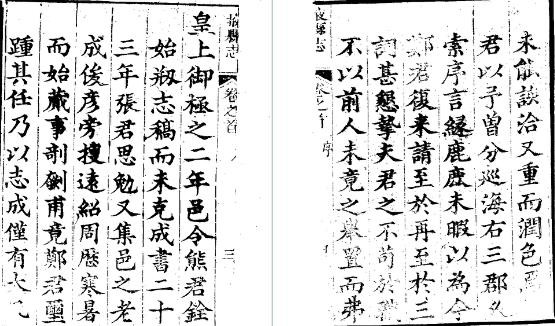 掖縣志
卷之首
三
皇上御極之二年邑令熊君銓
始剏志稿而未克成書二十
三年張君思勉又集邑之老
成俊彥旁搜遠紹周歷寒暑
而始蕆事剞劂甫竟鄭君璽
踵其任乃以志成僅有大凡
未能該洽又重而潤色焉
君以予曾分巡海右三郡久
索序言緣鹿鹿未暇以為今
鄭君復來請至於再至於三
詞甚懇摯夫君之不苟於職
不以前人未竟之舉置而弗
掖縣志
卷之首
序